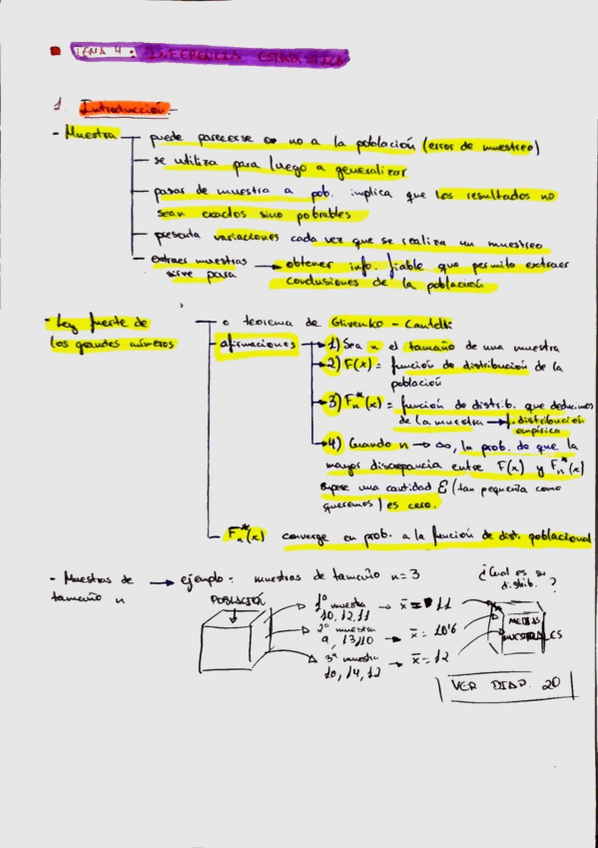 TEMA 4: INFERENCIA ESTADÍSTICA
1. Introducción.-
- Muestra
puede parecerse o no a la población (error de muestreo)
se utiliza para luego a generalizar
pasar de muestra a pob. implica que los resultados no
sean exactos sino pobrables
presenta variaciones cada vez que se realiza un muestreo
extraer muestras sirve para → obtener info. fiable que permita extraer
conclusiones de la población
- Ley fuerte de
los grandes números
o teorema de Glivenko - Cantelli
afirmaciones
1) Sea n el tamaño de una muestra
2) F(x) = función de distribución de la
población
3) Fn*(x) = función de distrib. que deducimos
de la muestra → f. distribución
empírica
4) Cuando n → ∞, la prob. de que la
mayor discrepancia entre F(x) y Fn*(x)
supere una cantidad Ɛ (tan pequeña como
queramos) es cero.
Fn*(x) converge en prob. a la función de dist. poblacional
- Muestras de
tamaño n
→ ejemplo: muestras de tamaño n=3
¿Cual es su
distrib. ?
POBLACIÓN
1º muestra
10, 12, 11
→ x̄ = 11
2º muestra
9, 13, 10
→ x̄ = 10'6
3º muestra
10, 14, 12
→ x̄ = 12
MEDIAS
MUESTRALES
VER DIAP. 20